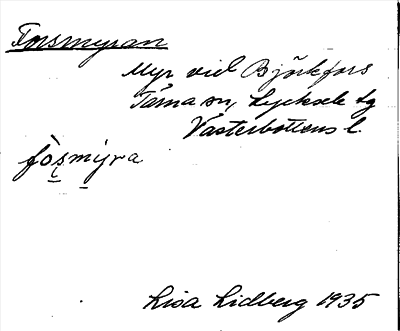 Forsmyran
Myr vid Björkfors
Tärna sn, Lycksele tg
Västerbottens l.
fòs̜mẏra
Lisa Lidberg 1935